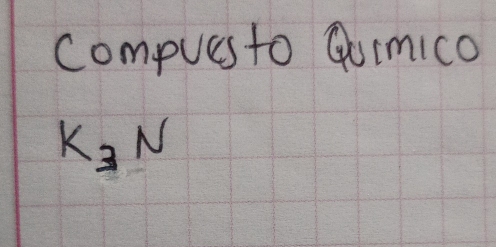 Compuesto Químico
K₃N